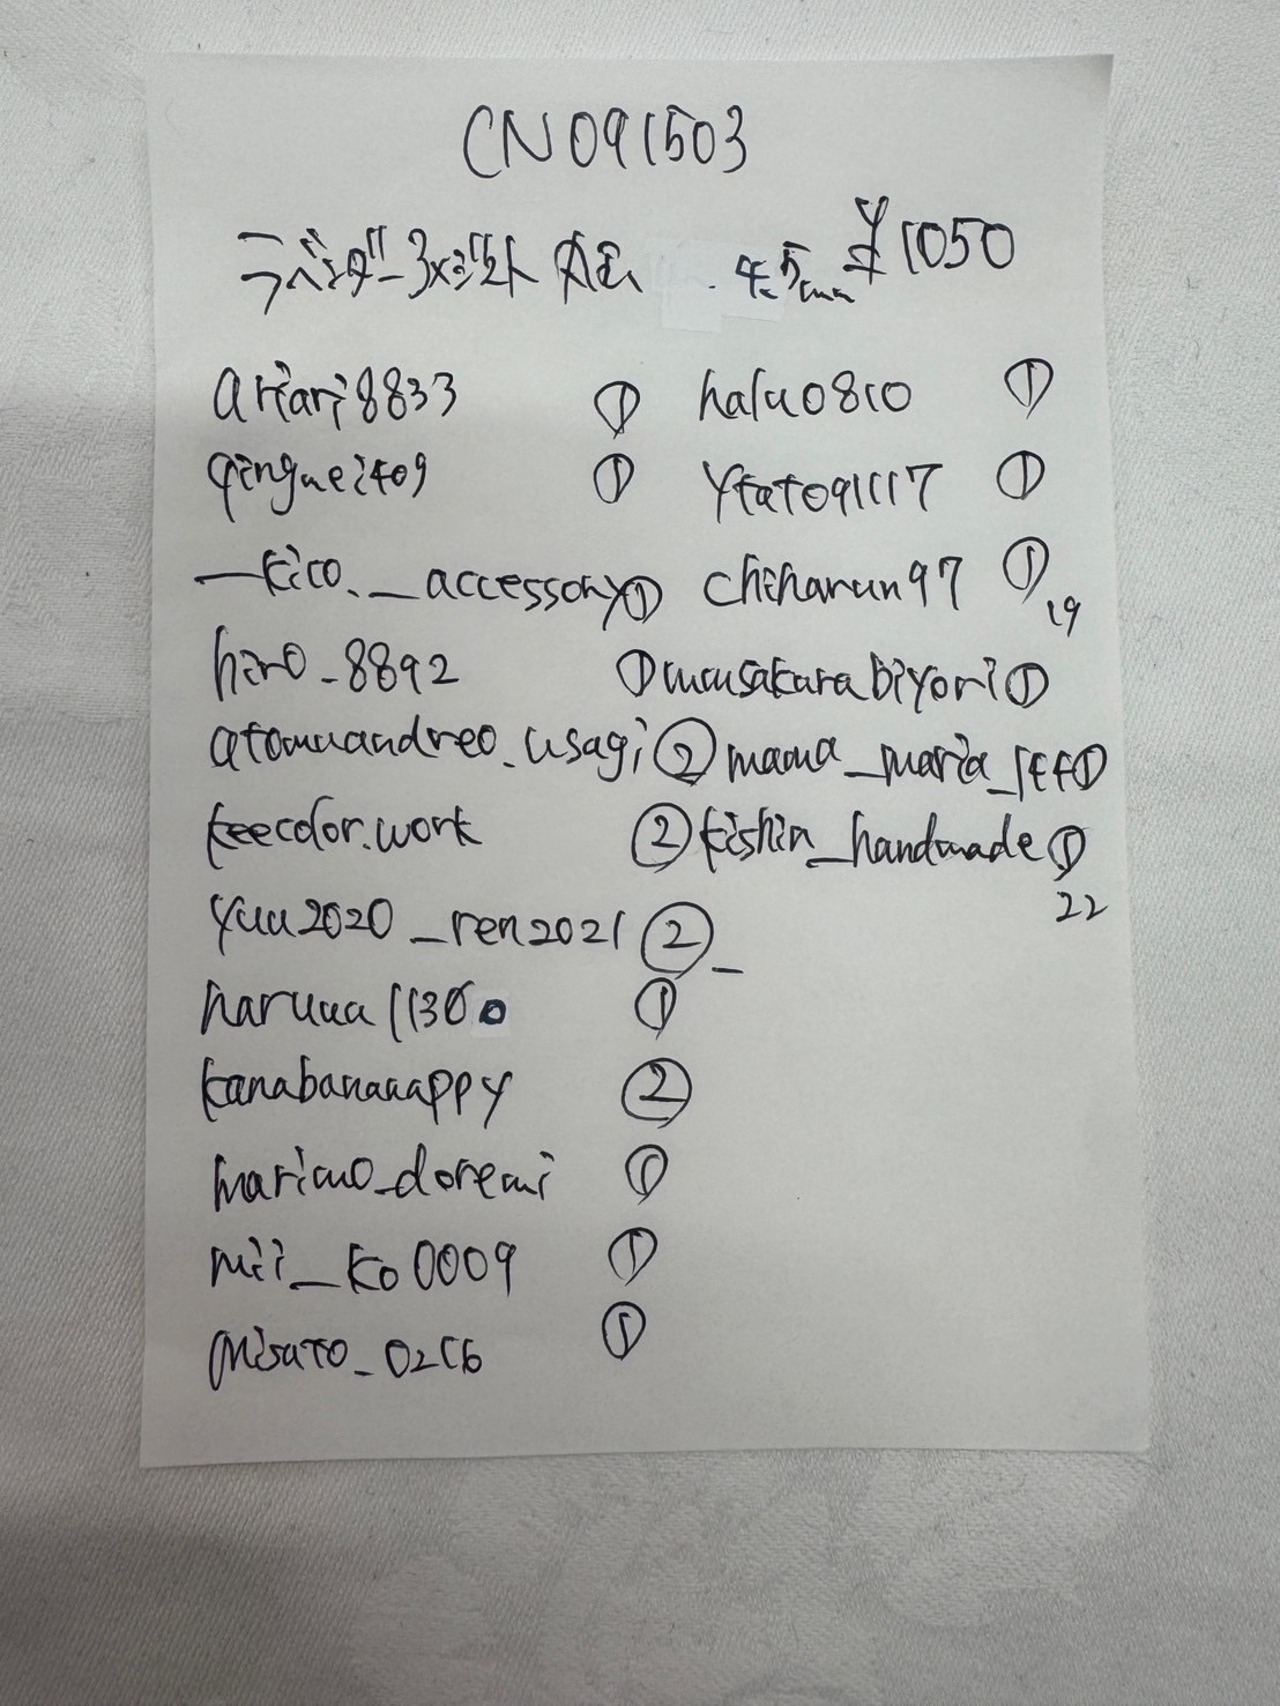 CN091503
ラベンダー 4.5mm ¥1050
ariari8833 ①
qingmei409 ①
—kico._accessory①
hiro_8892 ①
atomuandreo_usagi②
keecolor.work ②
yuu2020_ren2021②
haruua1130 ①
kanabanaaappy ②
marimo_doremi ①
mii_ko0009 ①
misato_0216 ①
halu0810 ①
ytato91117 ①
chiharun97 ①
19
musakurabiyori①
mama_maria_1
kishin_handmade①
22